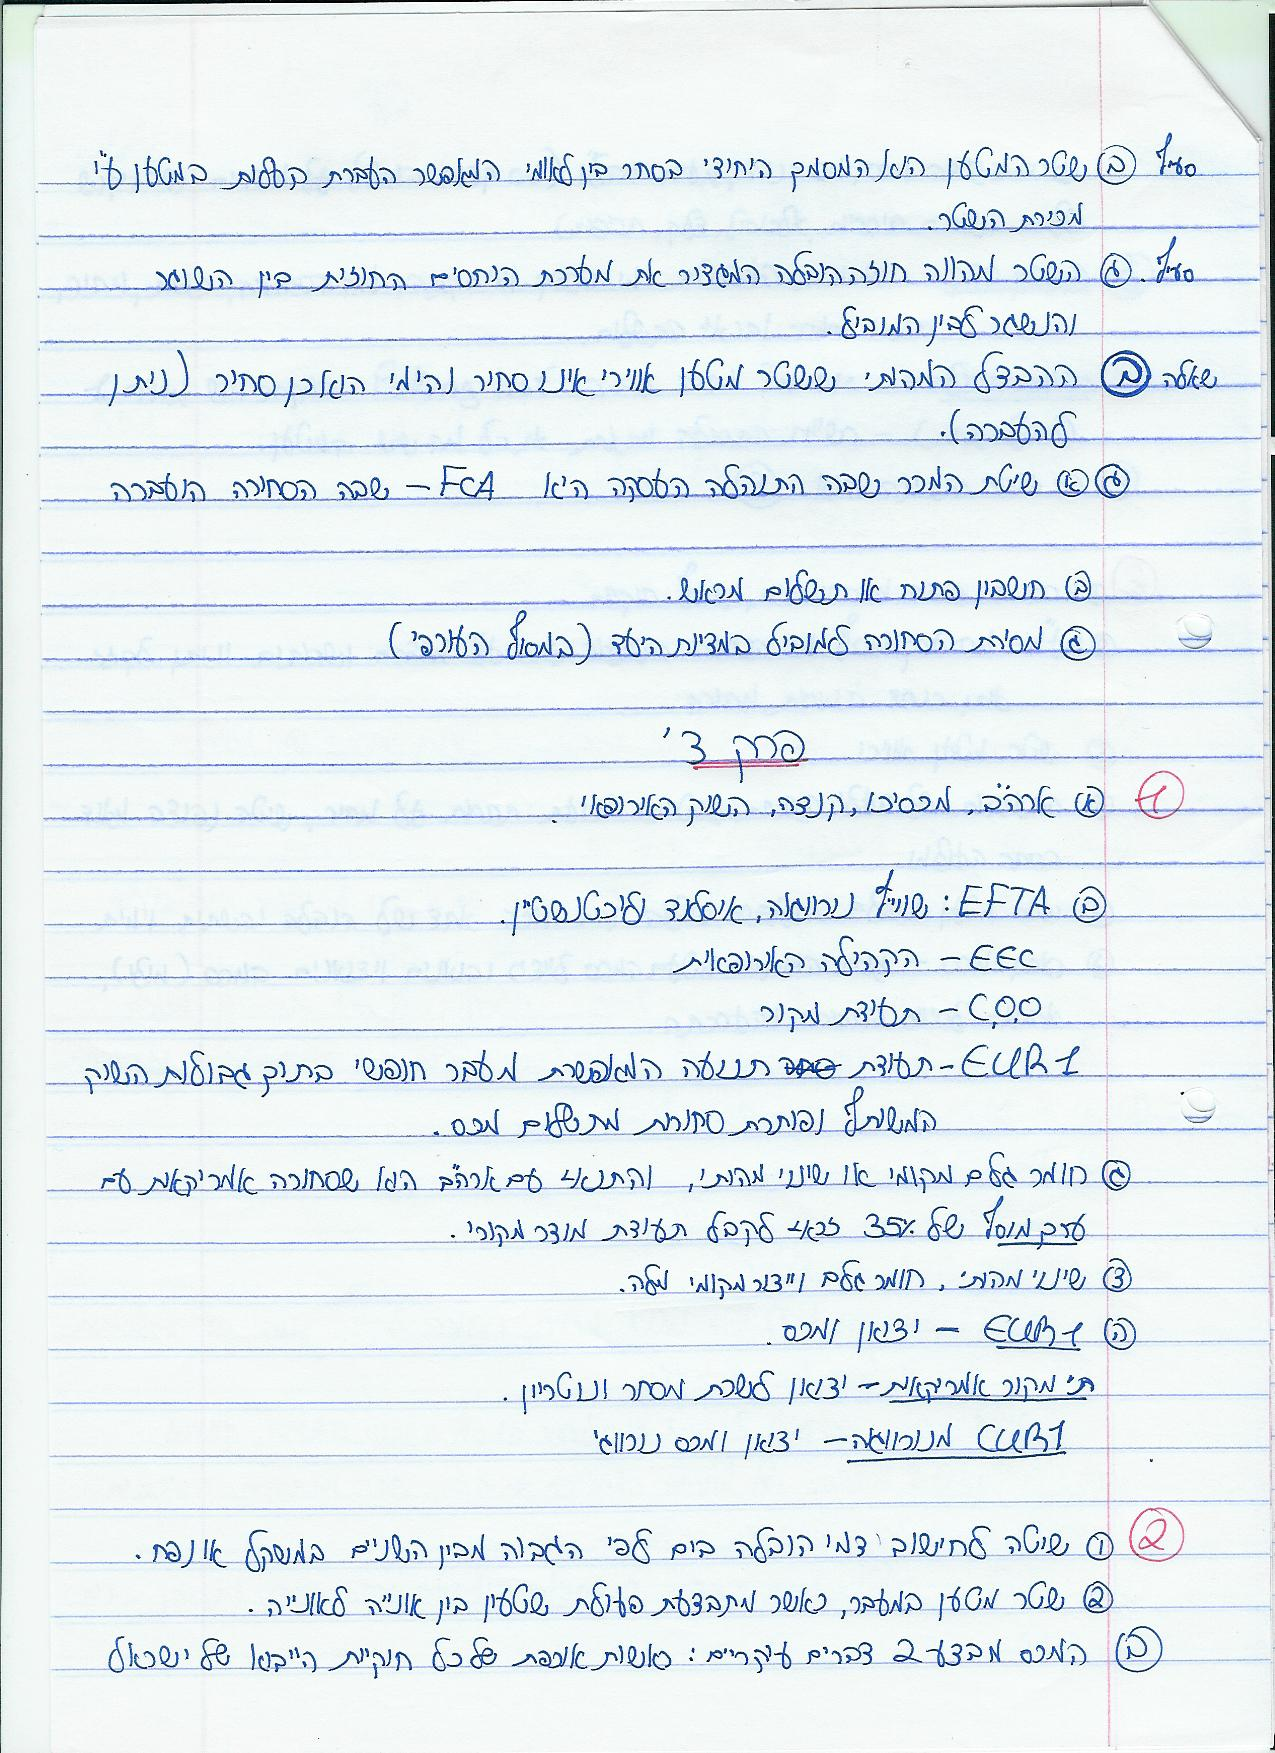 סעיף ב שטר המטען הוא המסמך היחידי בסחר בין לאומי המאפשר העברת בעלות במטען ע"י
מכירת השטר.
סעיף ג. השטר מהווה חוזה הובלה המגדיר את מערכת היחסים החוזית בין השוגר
והנשגר לבין המוביל.
שאלה ב ההבדל המהותי ששטר מטען אווירי אינו סחיר והימי הוא כן סחיר (ניתן
להעברה).
ג א שיטת המכר שבה התנהלה העסקה היא FCA – שבה הסחורה הועברה
ב חשבון פתוח או תשלום מראש.
ג מסירת הסחורה למוביל במדינת היעד (במסוף העורפי)
פרק ד'
1 א ארה"ב, מכסיכו, קנדה, השוק האירופאי.
ב EFTA: שוויץ נורווגיה, איסלנד וליכטנשטיין.
EEC – הקהילה האירופאית
C.O.O – תעודת מקור
EUR1 – תעודת תנועה המאפשרת מעבר חופשי בתוך גבולות השוק
המשותף ופוטרת סחורות מתשלום מכס.
ג חומר גלם מקומי או שינוי מהותי, והתנאי עם ארה"ב הוא שסחורה אמריקאית עם
ערך מוסף של 35% זכאי לקבל תעודת מוצר מקורי.
ד שינוי מהותי, חומר גלם וייצור מקומי מלה.
ה EUR1 – יצואן ומכס.
ת' מקור אמריקאית – יצואן לשכת מסחר ונוטריון.
EUR1 מנורווגיה – יצואן ומכס נורווגי
2 1 שיטה לחישוב דמי הובלה בים לפי הגבוה מבין השניים במשקל או נפח.
2 שטר מטען במעבר, כאשר מתבצעת פעולת שטעון בין אונייה לאונייה.
ב המכס מבצע 2 דברים עיקריים: כאשות אוכפת של כל חוקיות הייבוא של ישראל